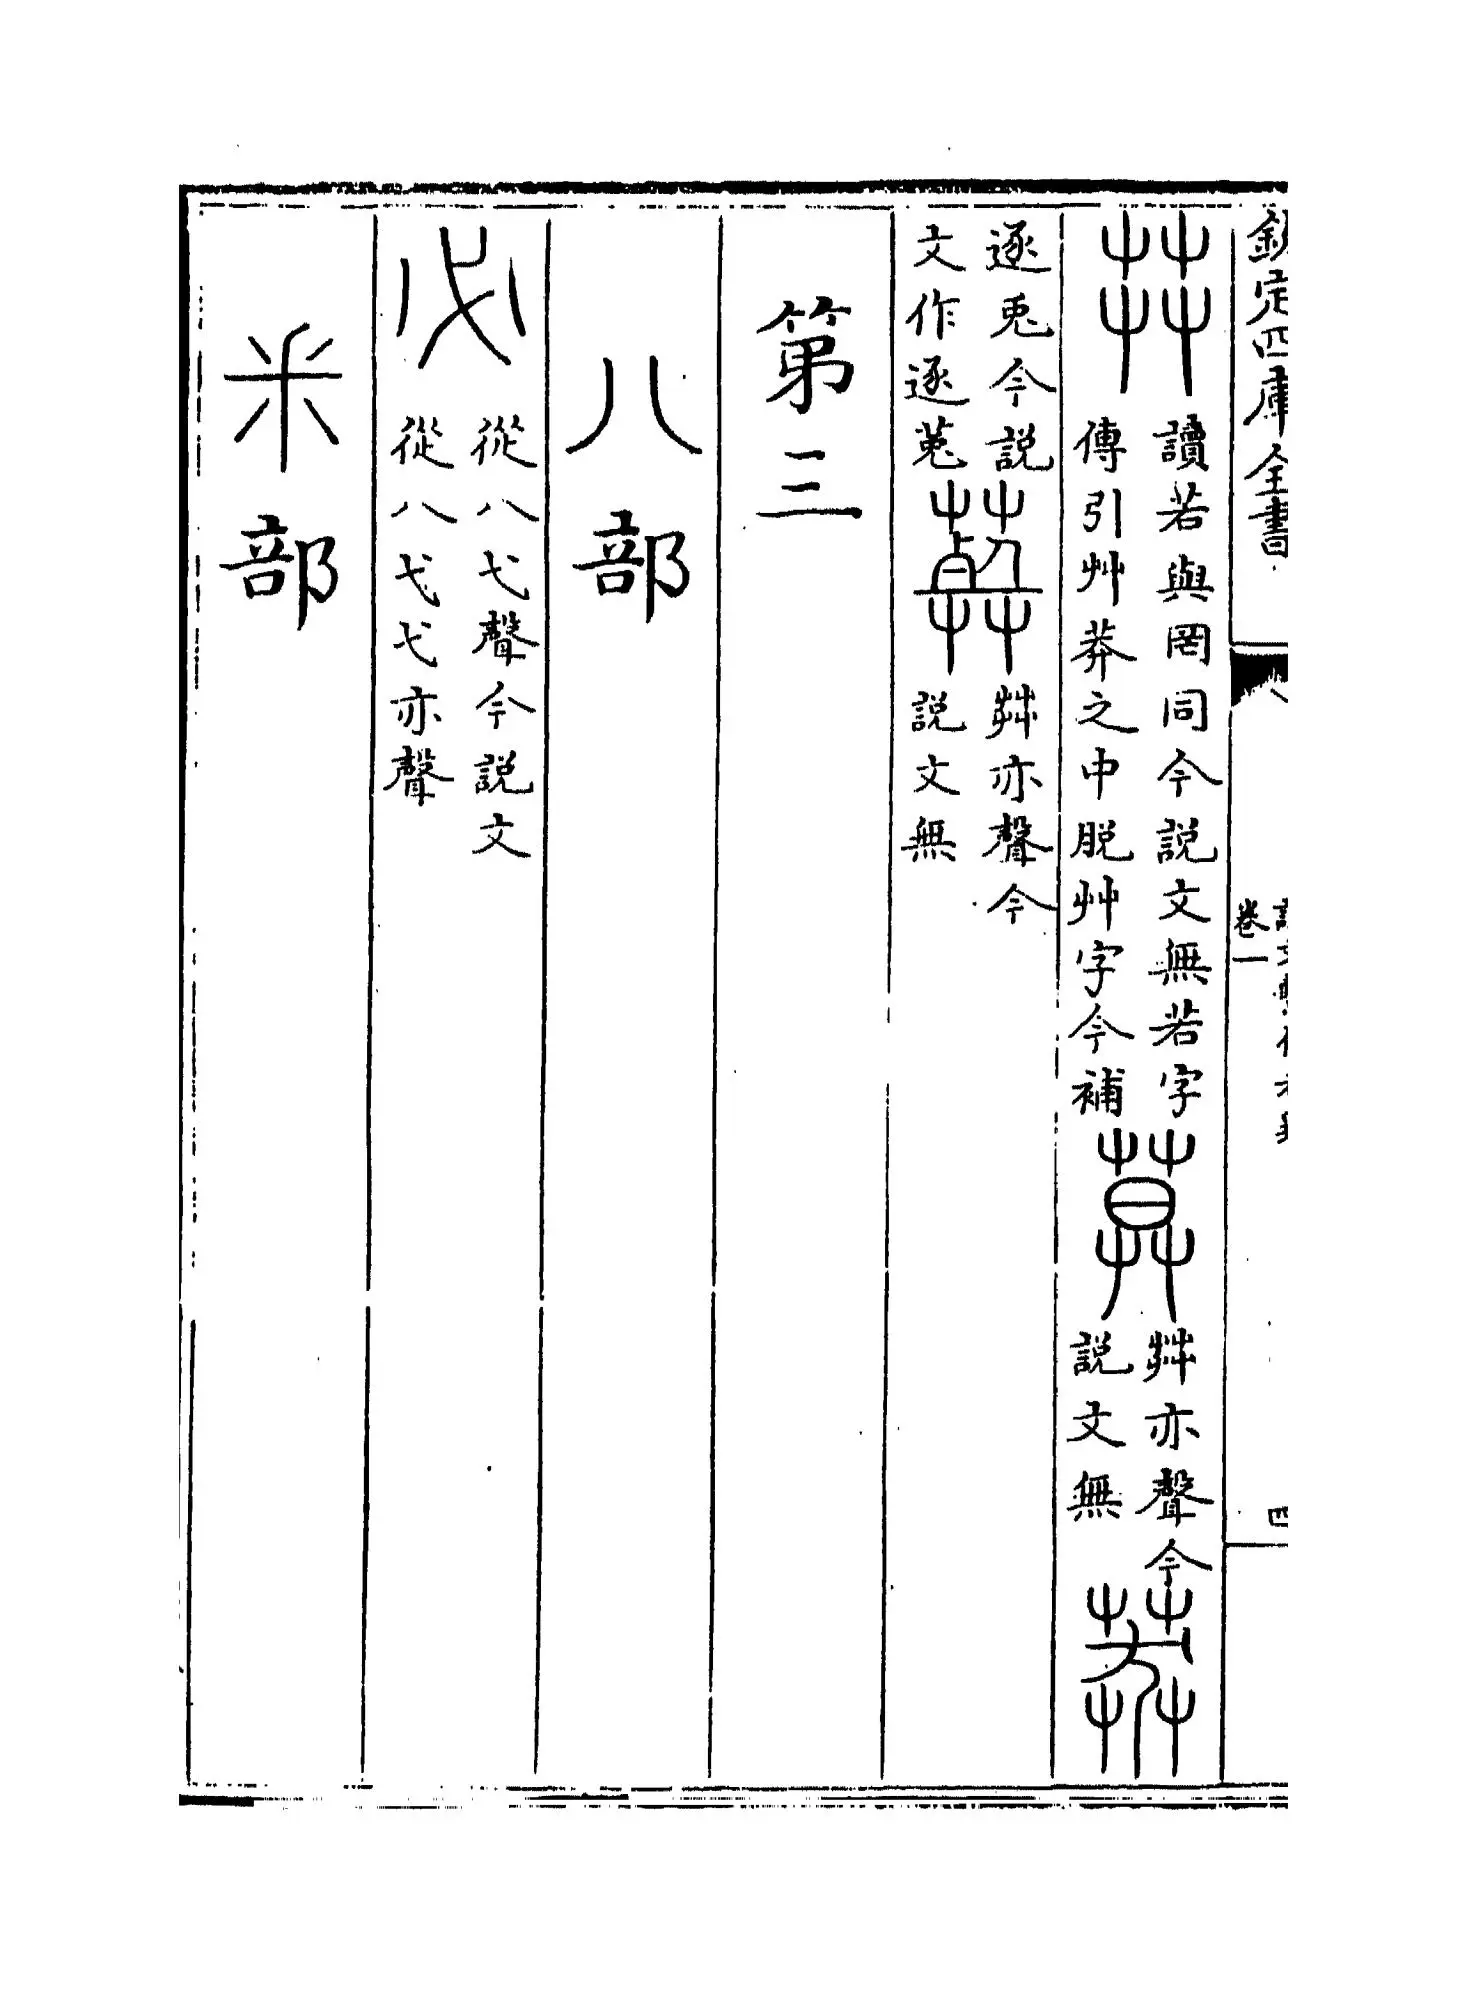 欽定四庫全書
卷一
四
茻
讀若與罔同今説文無若字
傳引艸莽之中脱艸字今補
莫
茻亦聲今
説文無
莽
逐兎今説
文作逐菟
葬
茻亦聲今
説文無
第三
八部
必
從八弋聲今説文
從八弋弋亦聲
釆部